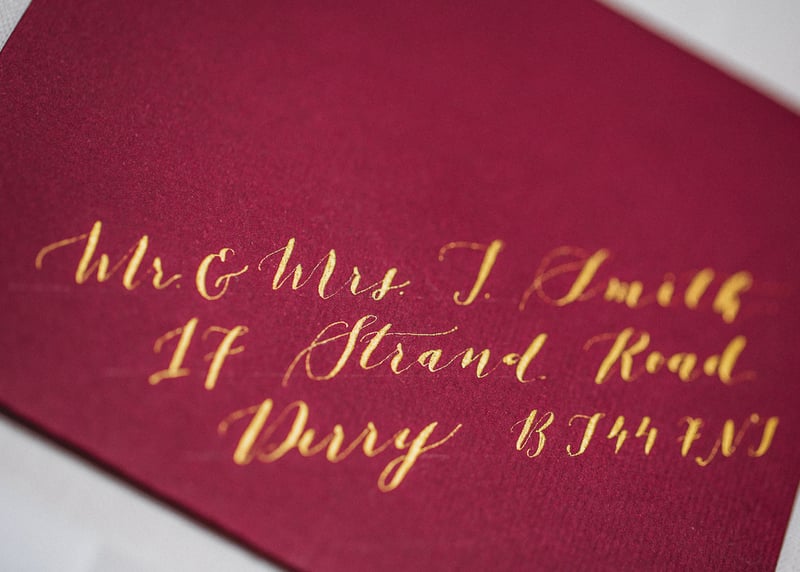 Mr. & Mrs. J. Smith
17 Strand Road
Derry BT44 7NJ